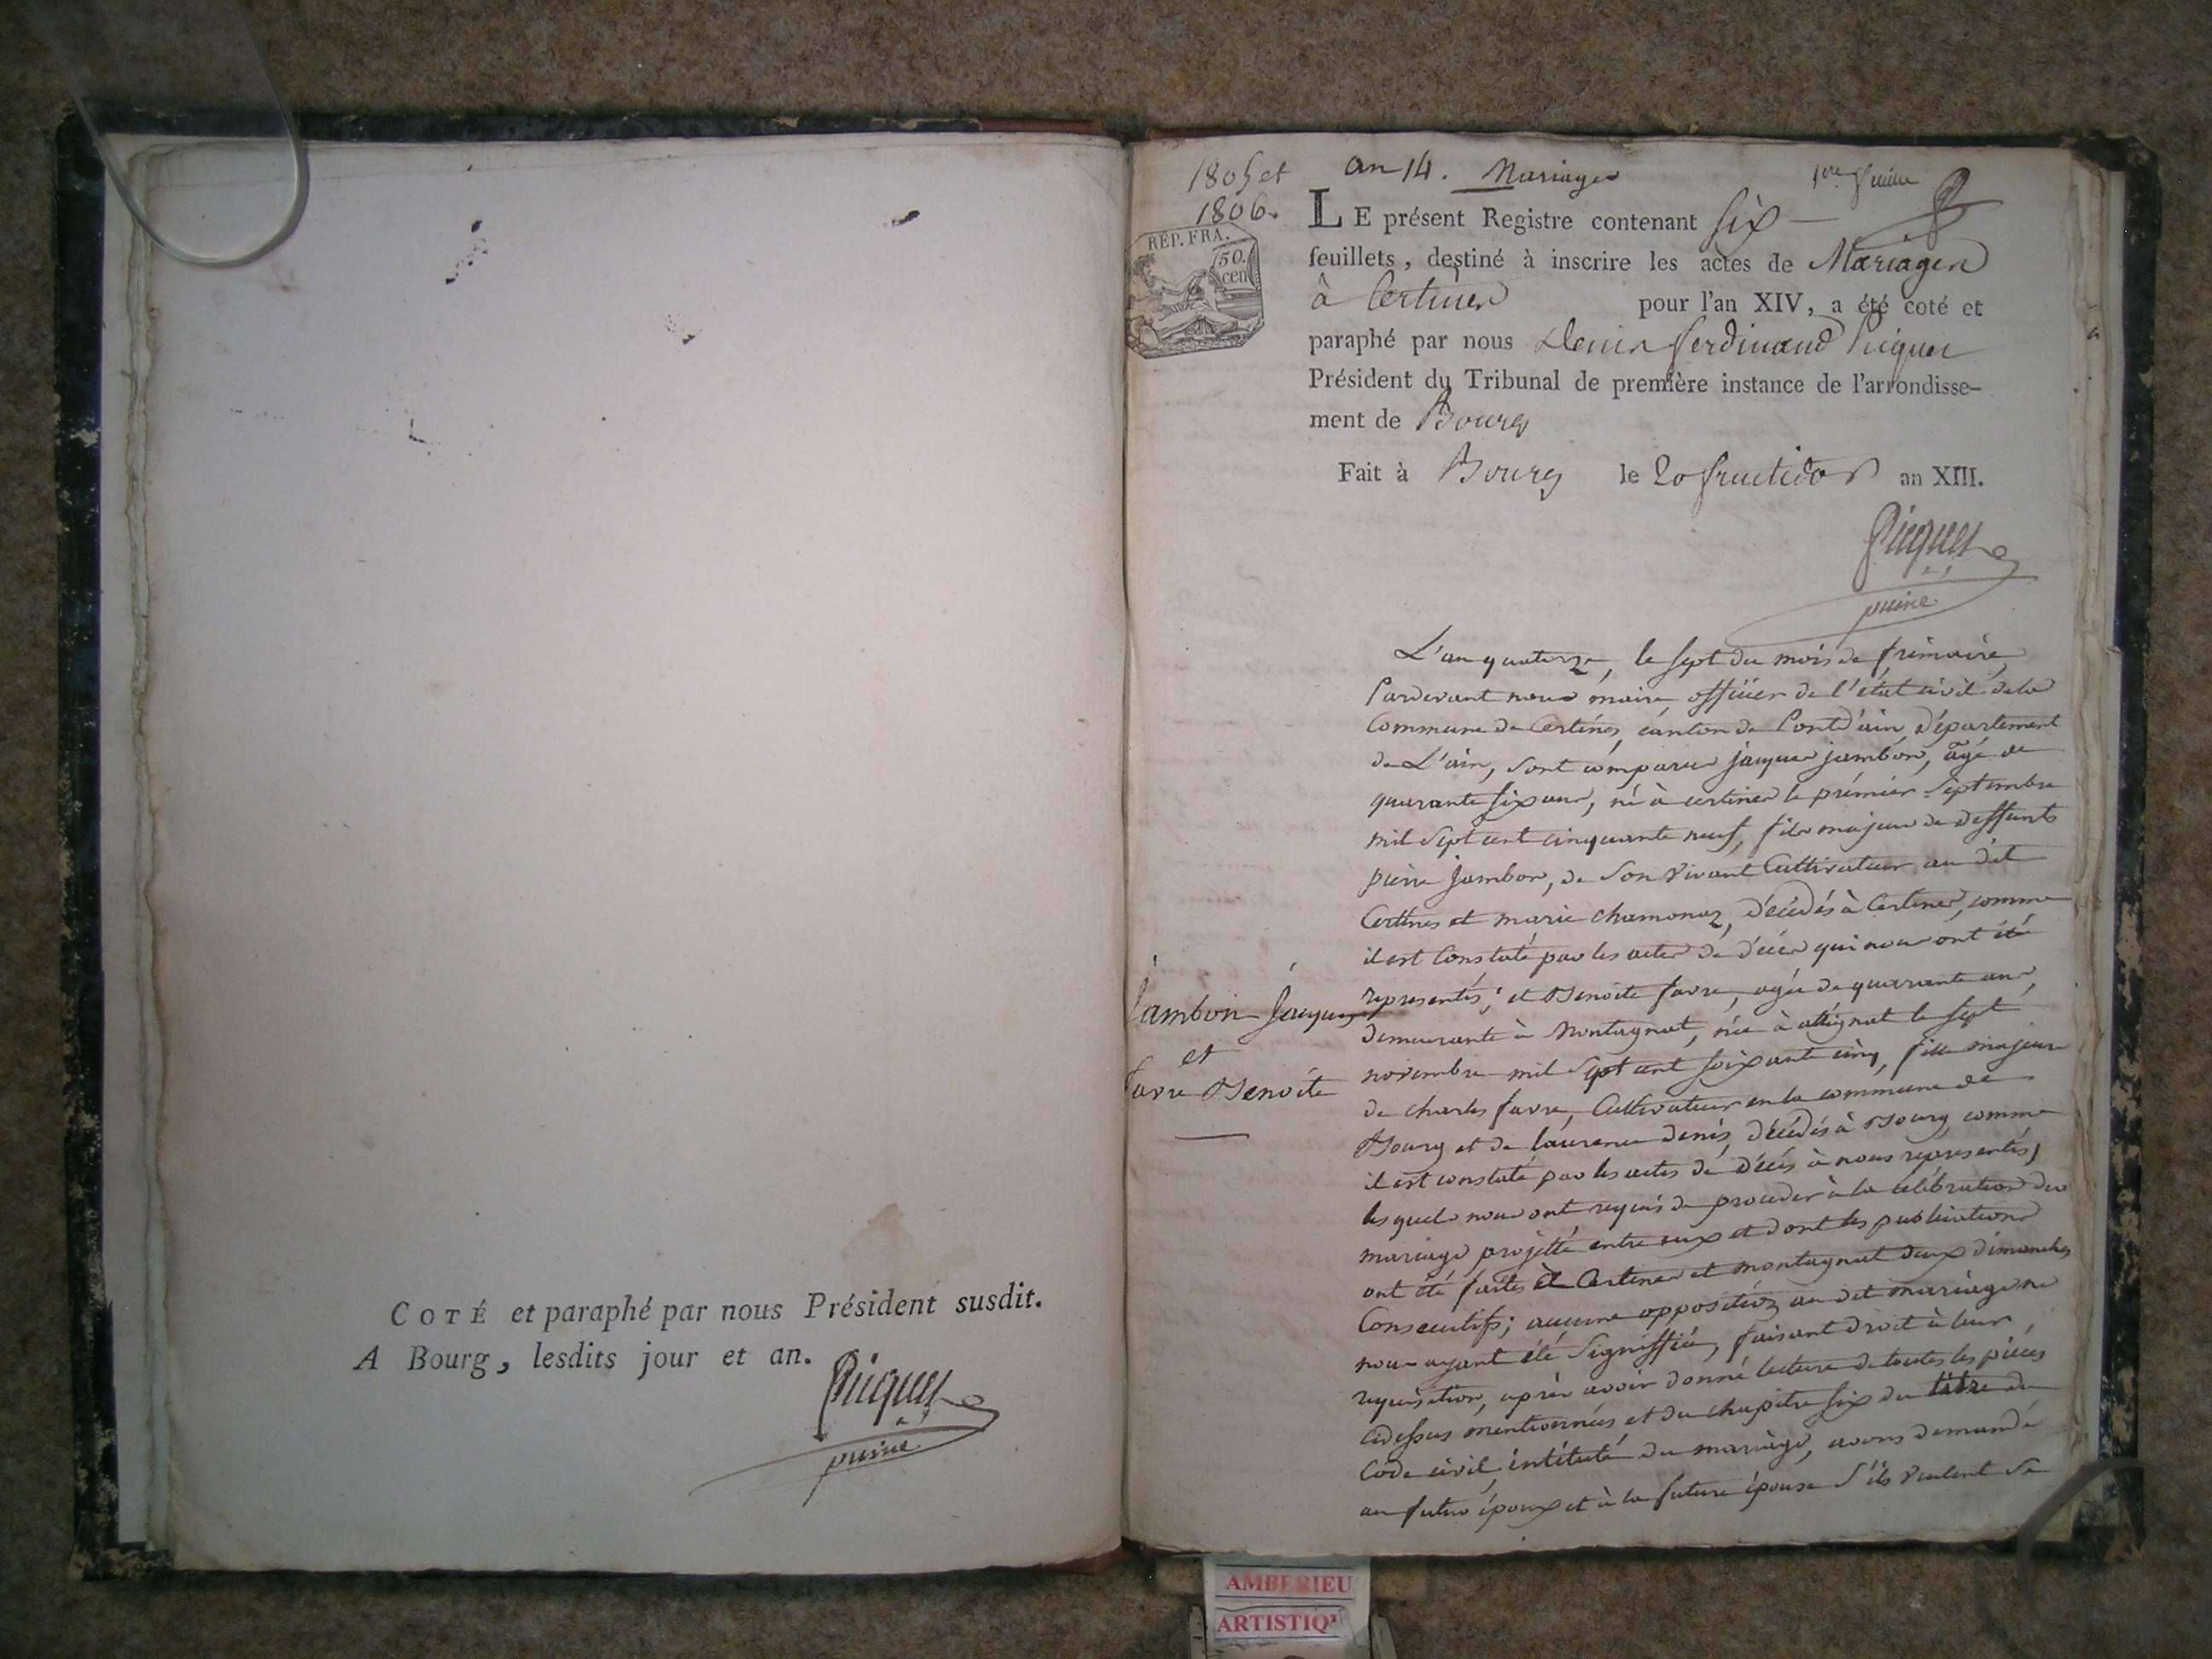 COTÉ et paraphé par nous Président susdit.
A Bourg, lesdits jour et an.
Picquet
puiné
1805 et
1806.
an 14. Mariages
1ere
REP. FRA.
50.
cen
LE présent Registre contenant six
feuillets, destiné à inscrire les actes de Mariages
à Certines pour l'an XIV, a été coté et
paraphé par nous Denis ferdinand Picquet
Président du Tribunal de première instance de l'arrondisse-
ment de Bourg
Fait à Bourg le 20 fructidor an XIII.
Picquet
puiné
L'an quatorze, le sept du mois de frimaire,
Pardevant nous maire, officier de l'état civil de la
Commune de Certines, canton de Pontd'ain, département
de L'ain, sont comparus jacques jambon, âgé de
quarante six ans, né à certines le prémier Septembre
mil Sept cent cinquante neuf, fils majeur de deffunts
pierre Jambon, de Son Vivant Cultivateur au dit
Certines et marie chamonaz, décédés à Certines, comme
il est Constaté par les actes de décès qui nous ont été
représentés; et Benoite favre, agée de quarante ans,
demeurante à Montagnat, née à attignat le Sept
novembre mil Sept cent soixante cinq, fille majeure
de charles favre, Cultivateur en la commune de
Bourg et de laurence denis, décédés à Bourg comme
il est constaté par les actes de décès à nous représentés,
lesquels nous ont requis de proceder à la célébration du
mariage projetté entre eux et dont les publications
ont été faites à Certines et montagnat deux dimanches
Consecutifs; aucune opposition au dit mariage ne
nous ayant été Signiffiée, faisant droit à leur
requisition, après avoir donné lecture de toutes les pièces
cidessus mentionnées, et du chapitre six du titre du
Code civil, intitulé du mariage, avons demandé
au futur époux et à la future épouse S'ils Veulent Se
Jambon Jacques
et
favre Benoite
AMBERIEU
ARTISTIQ